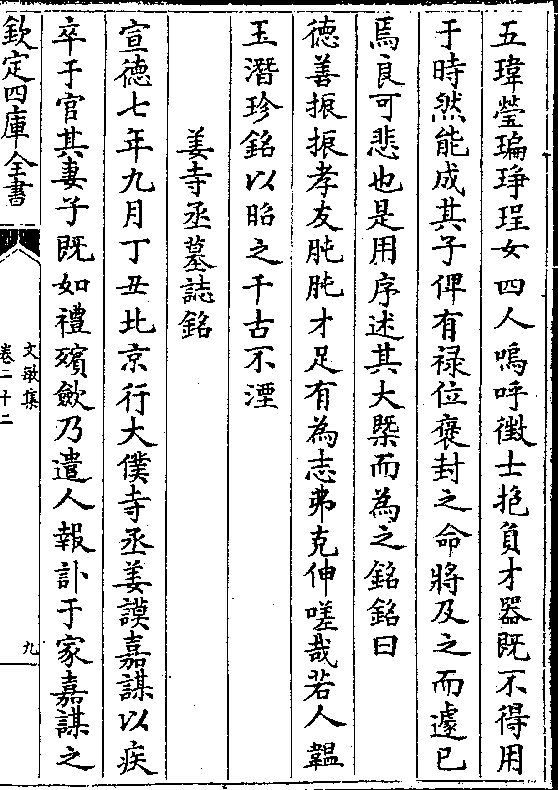 五瑋瑩瑞琤珵女四人嗚呼徵士抱負才器既不得用
于時然能成其子俾有禄位褒封之命將及之而遽已
焉良可悲也是用序述其大槩而為之銘銘曰
德善振振孝友肫肫才足有為志弗克伸嗟哉若人韞
玉潛珍銘以昭之千古不湮
姜寺丞墓誌銘
宣德七年九月丁丑北京行大僕寺丞姜謨嘉謀以疾
卒于官其妻子既如禮殯斂乃遣人報訃于家嘉謀之
欽定四庫全書
文敏集
卷二十二
九